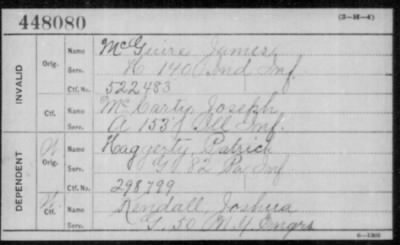 448080
(3-M-4)
INVALID
Orig.
Name McGuire, James,
Serv. H 140 Ind Inf
Ctf. No. 522483
Ctf.
Name McCarty, Joseph
Serv. A 153 Ill Inf.
DEPENDENT
Orig.
Name Haggerty, Patrick
Serv. G 82 Pa Inf
Ctf. No. 298799
Ctf.
Name Kendall, Joshua
Serv. F, 50 N.Y. Engrs